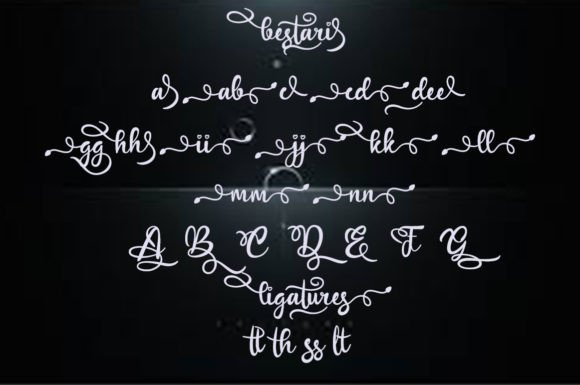 bestaris
as ab cl cd deel
gg hhs ii jj kk ll
mm nn
A B C D E F G
ligatures
tl th ss lt